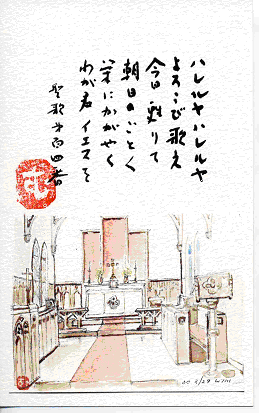 ハレルヤ ハレルヤ
よろこび歌え
今日 甦りて
朝日のごとく
栄にかがやく
わが君 イエスを
聖歌 第百四番